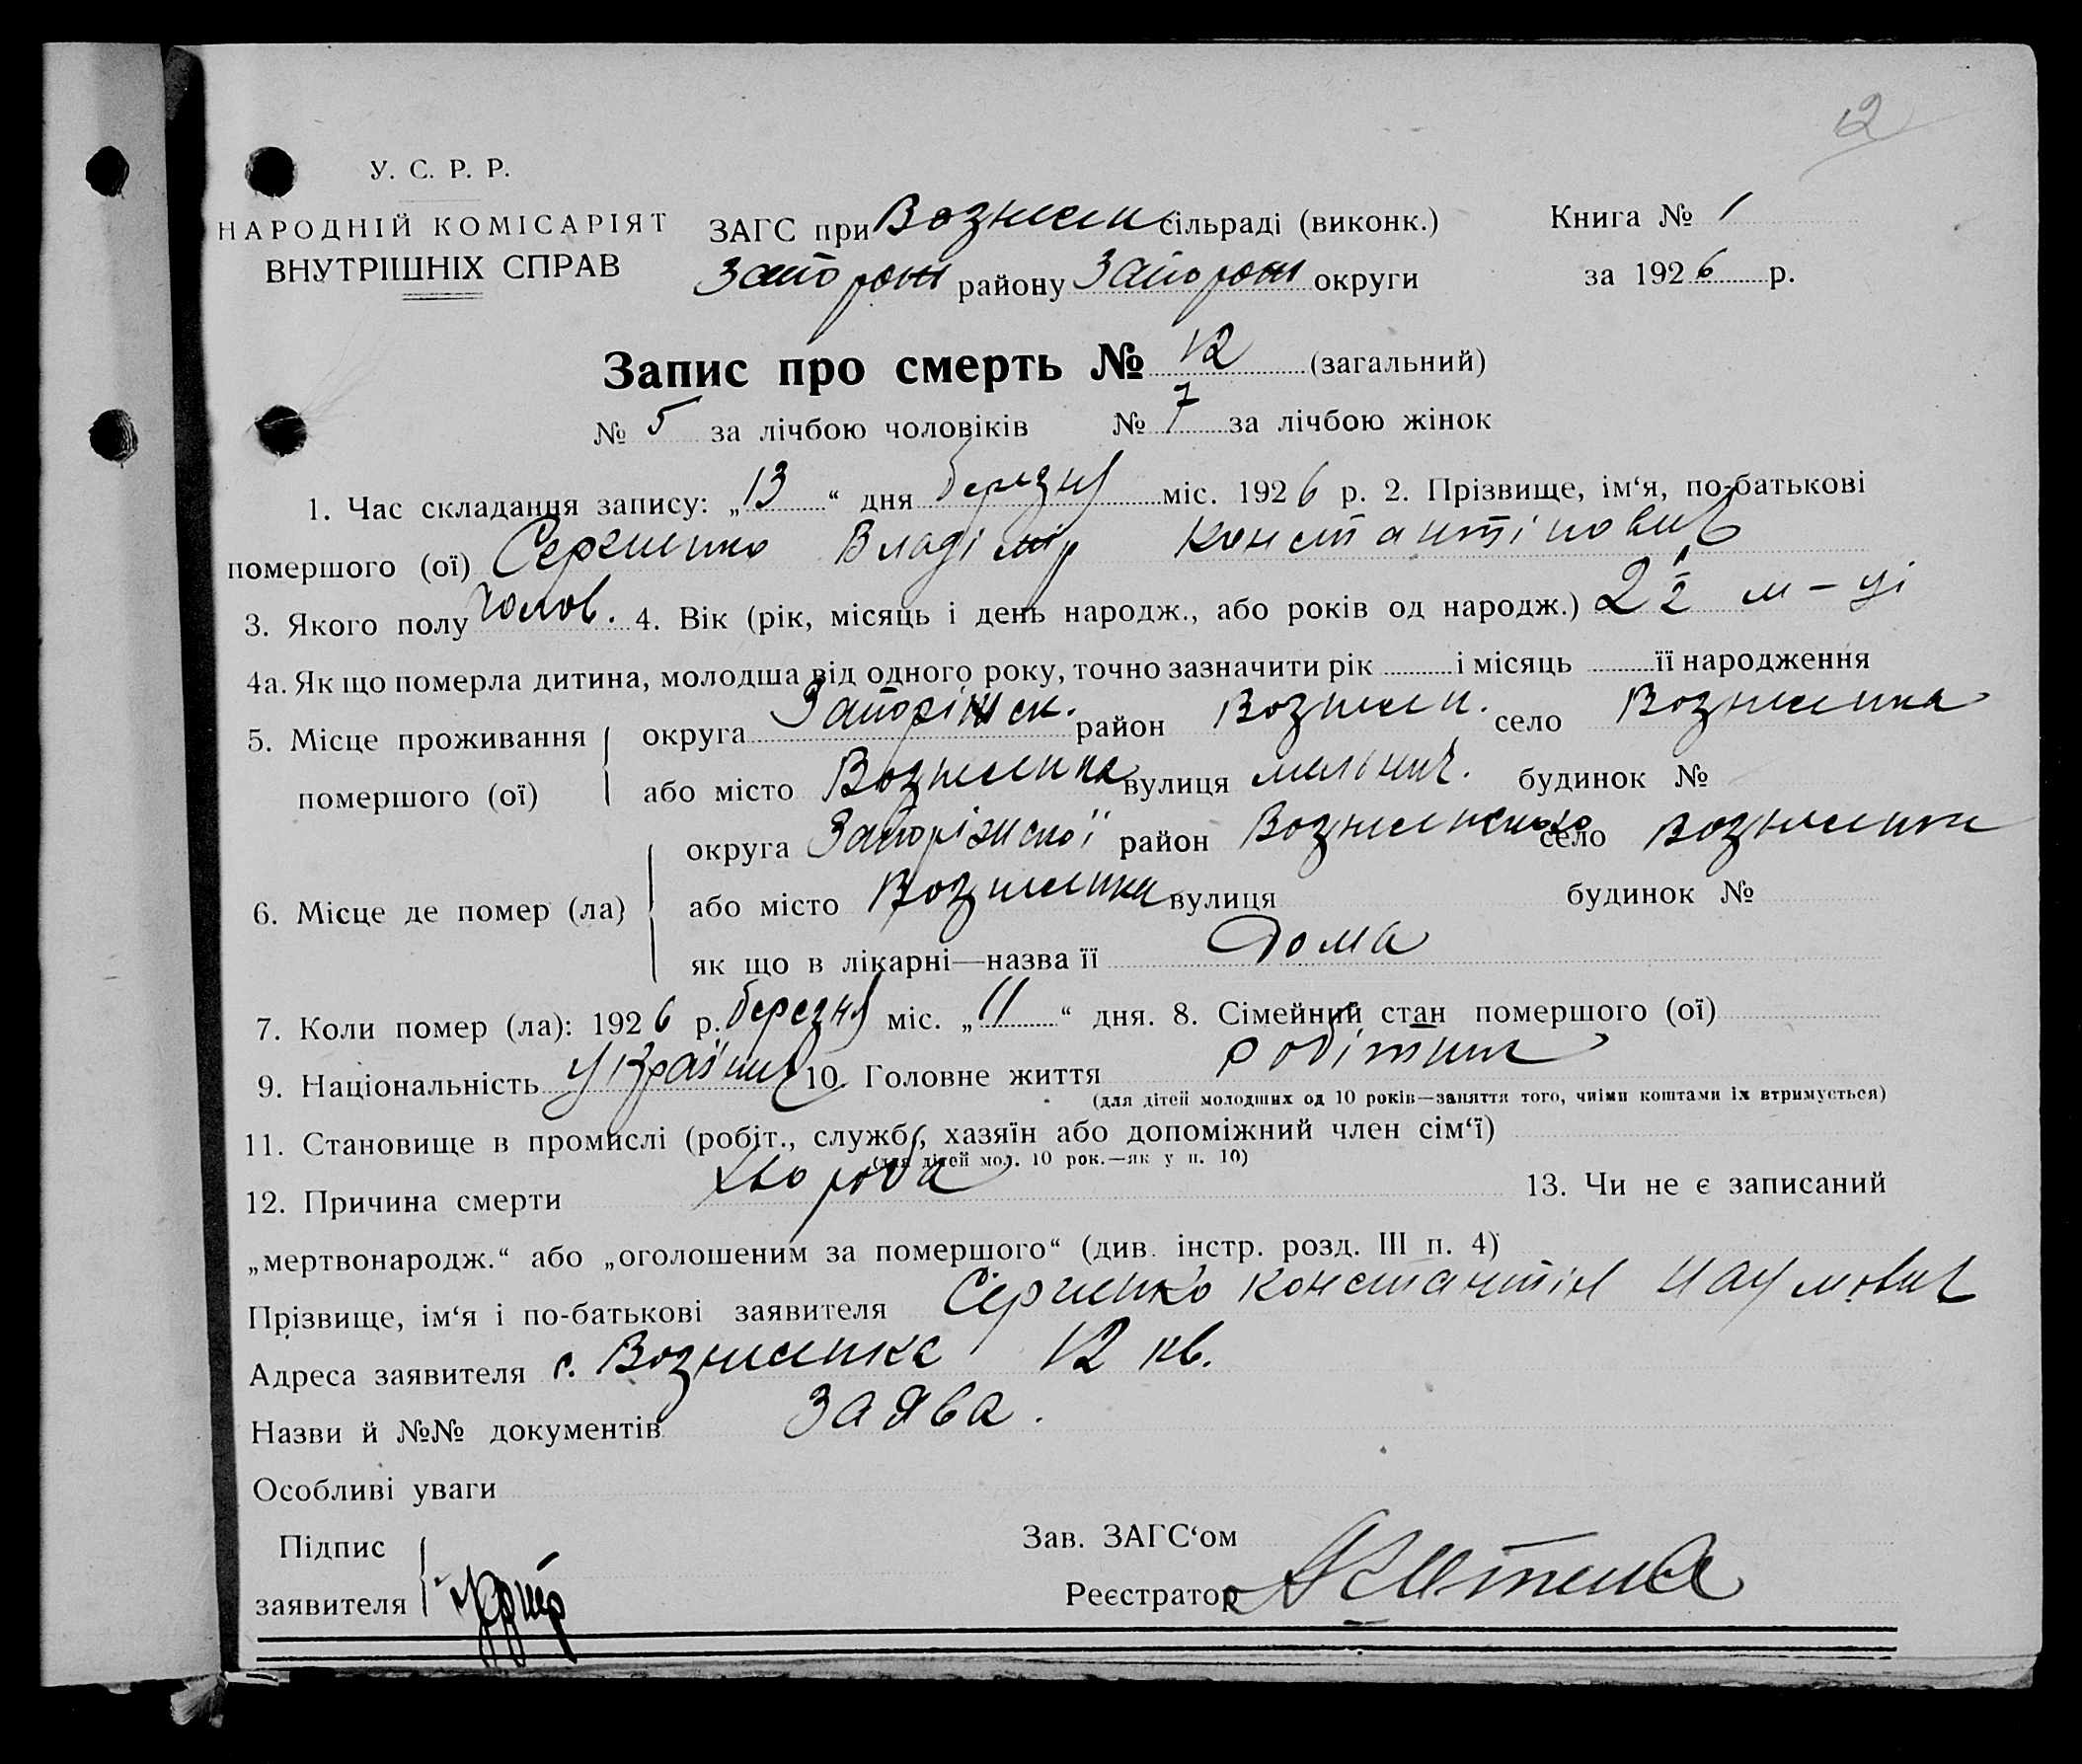 12
У. С. Р. Р.
НАРОДНІЙ КОМІСАРІЯТ
ВНУТРІШНІХ СПРАВ
ЗАГС при Вознесен сільраді (виконк.)
Запорож району Запорож округи
Книга № 1
за 1926 р.
Запис про смерть № 12 (загальний)
№ 5 за лічбою чоловіків № 7 за лічбою жінок
1. Час складання запису: „13“ дня березня міс. 1926 р. 2. Прізвище, ім‘я, по-батькові
помершого (ої) Сергиенко Владімір Константінович
3. Якого полу чолов. 4. Вік (рік, місяць і день народж., або років од народж.) 2 1/2 м-ці
4а. Як що померла дитина, молодша від одного року, точно зазначити рік і місяць її народження
5. Місце проживання округа Запоріжск. район Вознесен. село Вознесенка
помершого (ої) або місто Вознесенка вулиця будинок №
округа Запоріжської район Вознесенсько село Вознесенки
6. Місце де помер (ла) або місто Вознесенка вулиця будинок №
як що в лікарні—назва її Дома
7. Коли помер (ла): 1926 р. березня міс. „11“ дня. 8. Сімейний стан помершого (ої)
9. Національність Україниц 10. Головне життя робітник
(для дітей молодших од 10 років—заняття того, чиїми коштами їх втримується)
11. Становище в промислі (робіт., службі, хазяїн або допоміжний член сім‘ї)
(для дітей мол. 10 рок.—як у п. 10)
12. Причина смерти хвороба 13. Чи не є записаний
„мертвонародж.“ або „оголошеним за помершого“ (див. інстр. розд. III п. 4)
Прізвище, ім‘я і по-батькові заявителя Сергиенко Константін Наумович
Адреса заявителя с. Вознесенка 12 кв.
Назви й №№ документів заява.
Особливі уваги
Підпис
заявителя
Зав. ЗАГС‘ом
Реєстратор